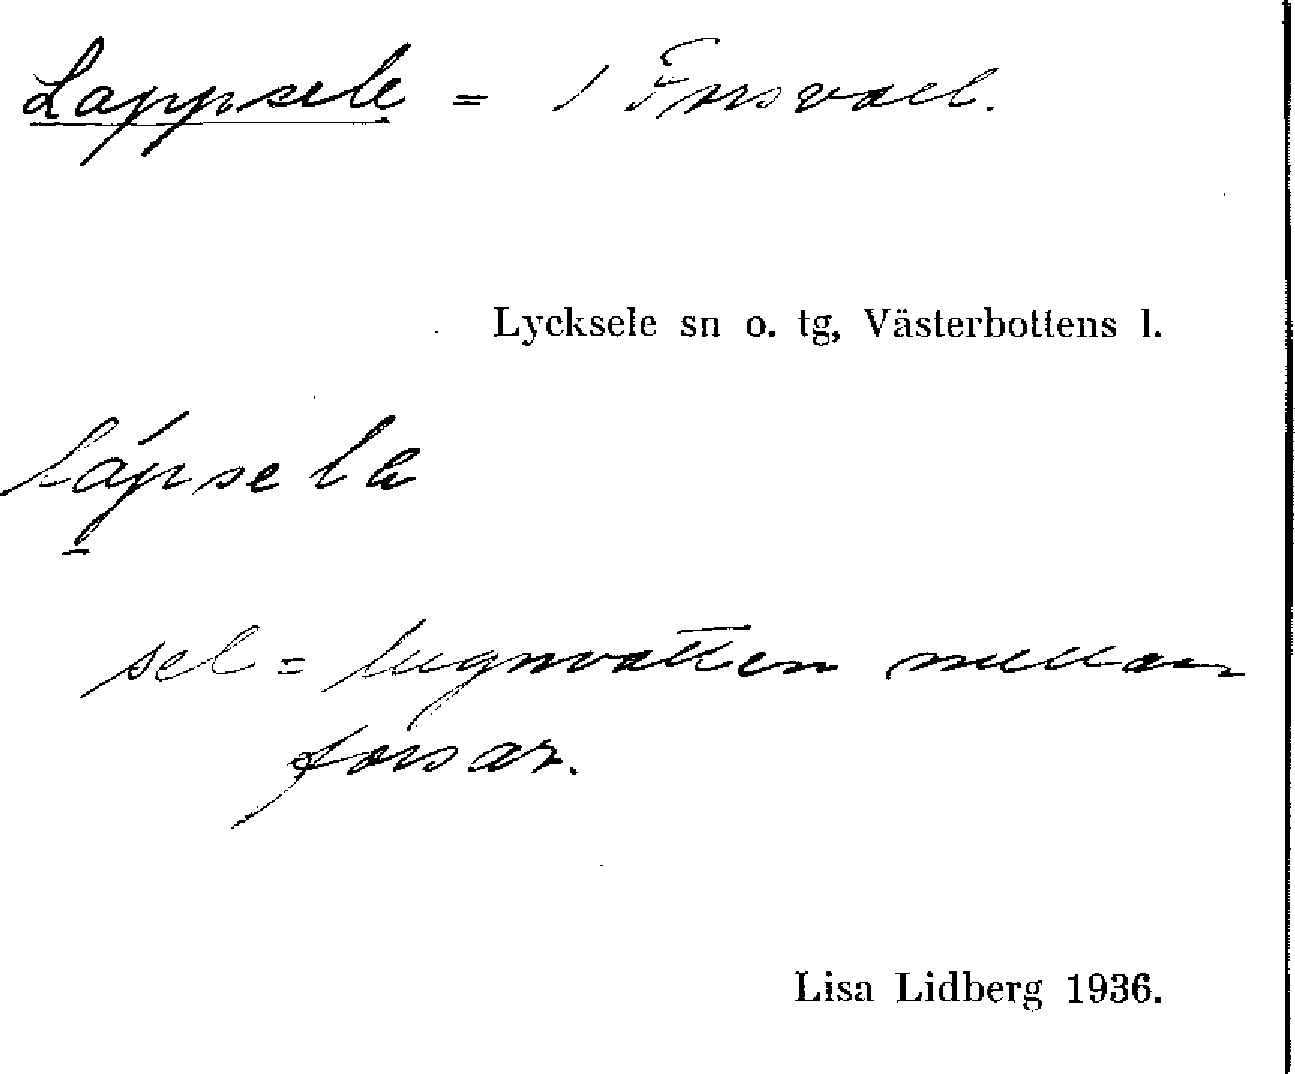 Lappsele = 1 Forsvall.
Lycksele sn o. tg, Västerbottens l.
lápsela
sel = lugnvatten mellan
forsar.
Lisa Lidberg 1936.